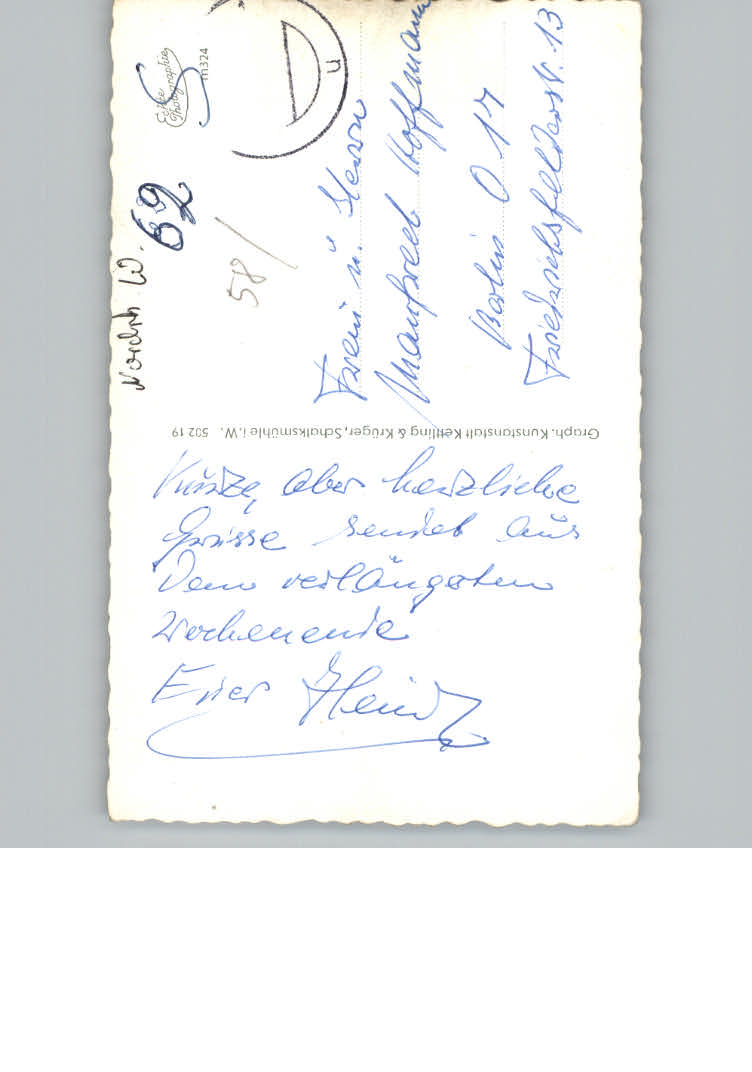 Kurze, aber herzliche
Grüsse sendet aus
dem verlängerten
Wochenende
Euer Heinz
Graph. Kunstanstalt Kettling & Krüger, Schalksmühle i.W. 502 19
Nordrh W.
62
58/
Echte
Photographie
m324
u
Frau u. Herrn
Manfred Hoffmann
Berlin O 17
Friedrichsfelderstr. 13